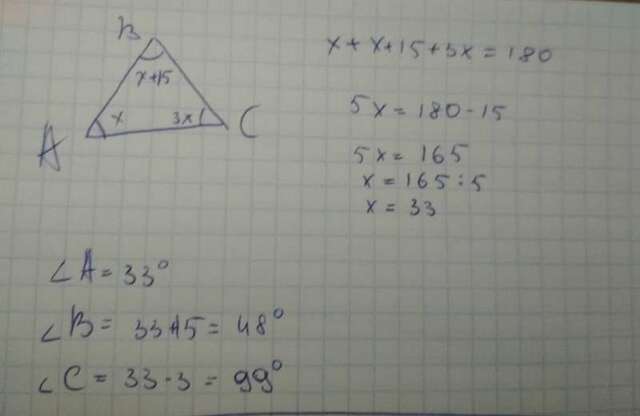 B
x+15
x 3x
A C
x + x+15+3x = 180
5x = 180-15
5x = 165
x = 165:5
x = 33
∠A = 33°
∠B = 33+15 = 48°
∠C = 33·3 = 99°